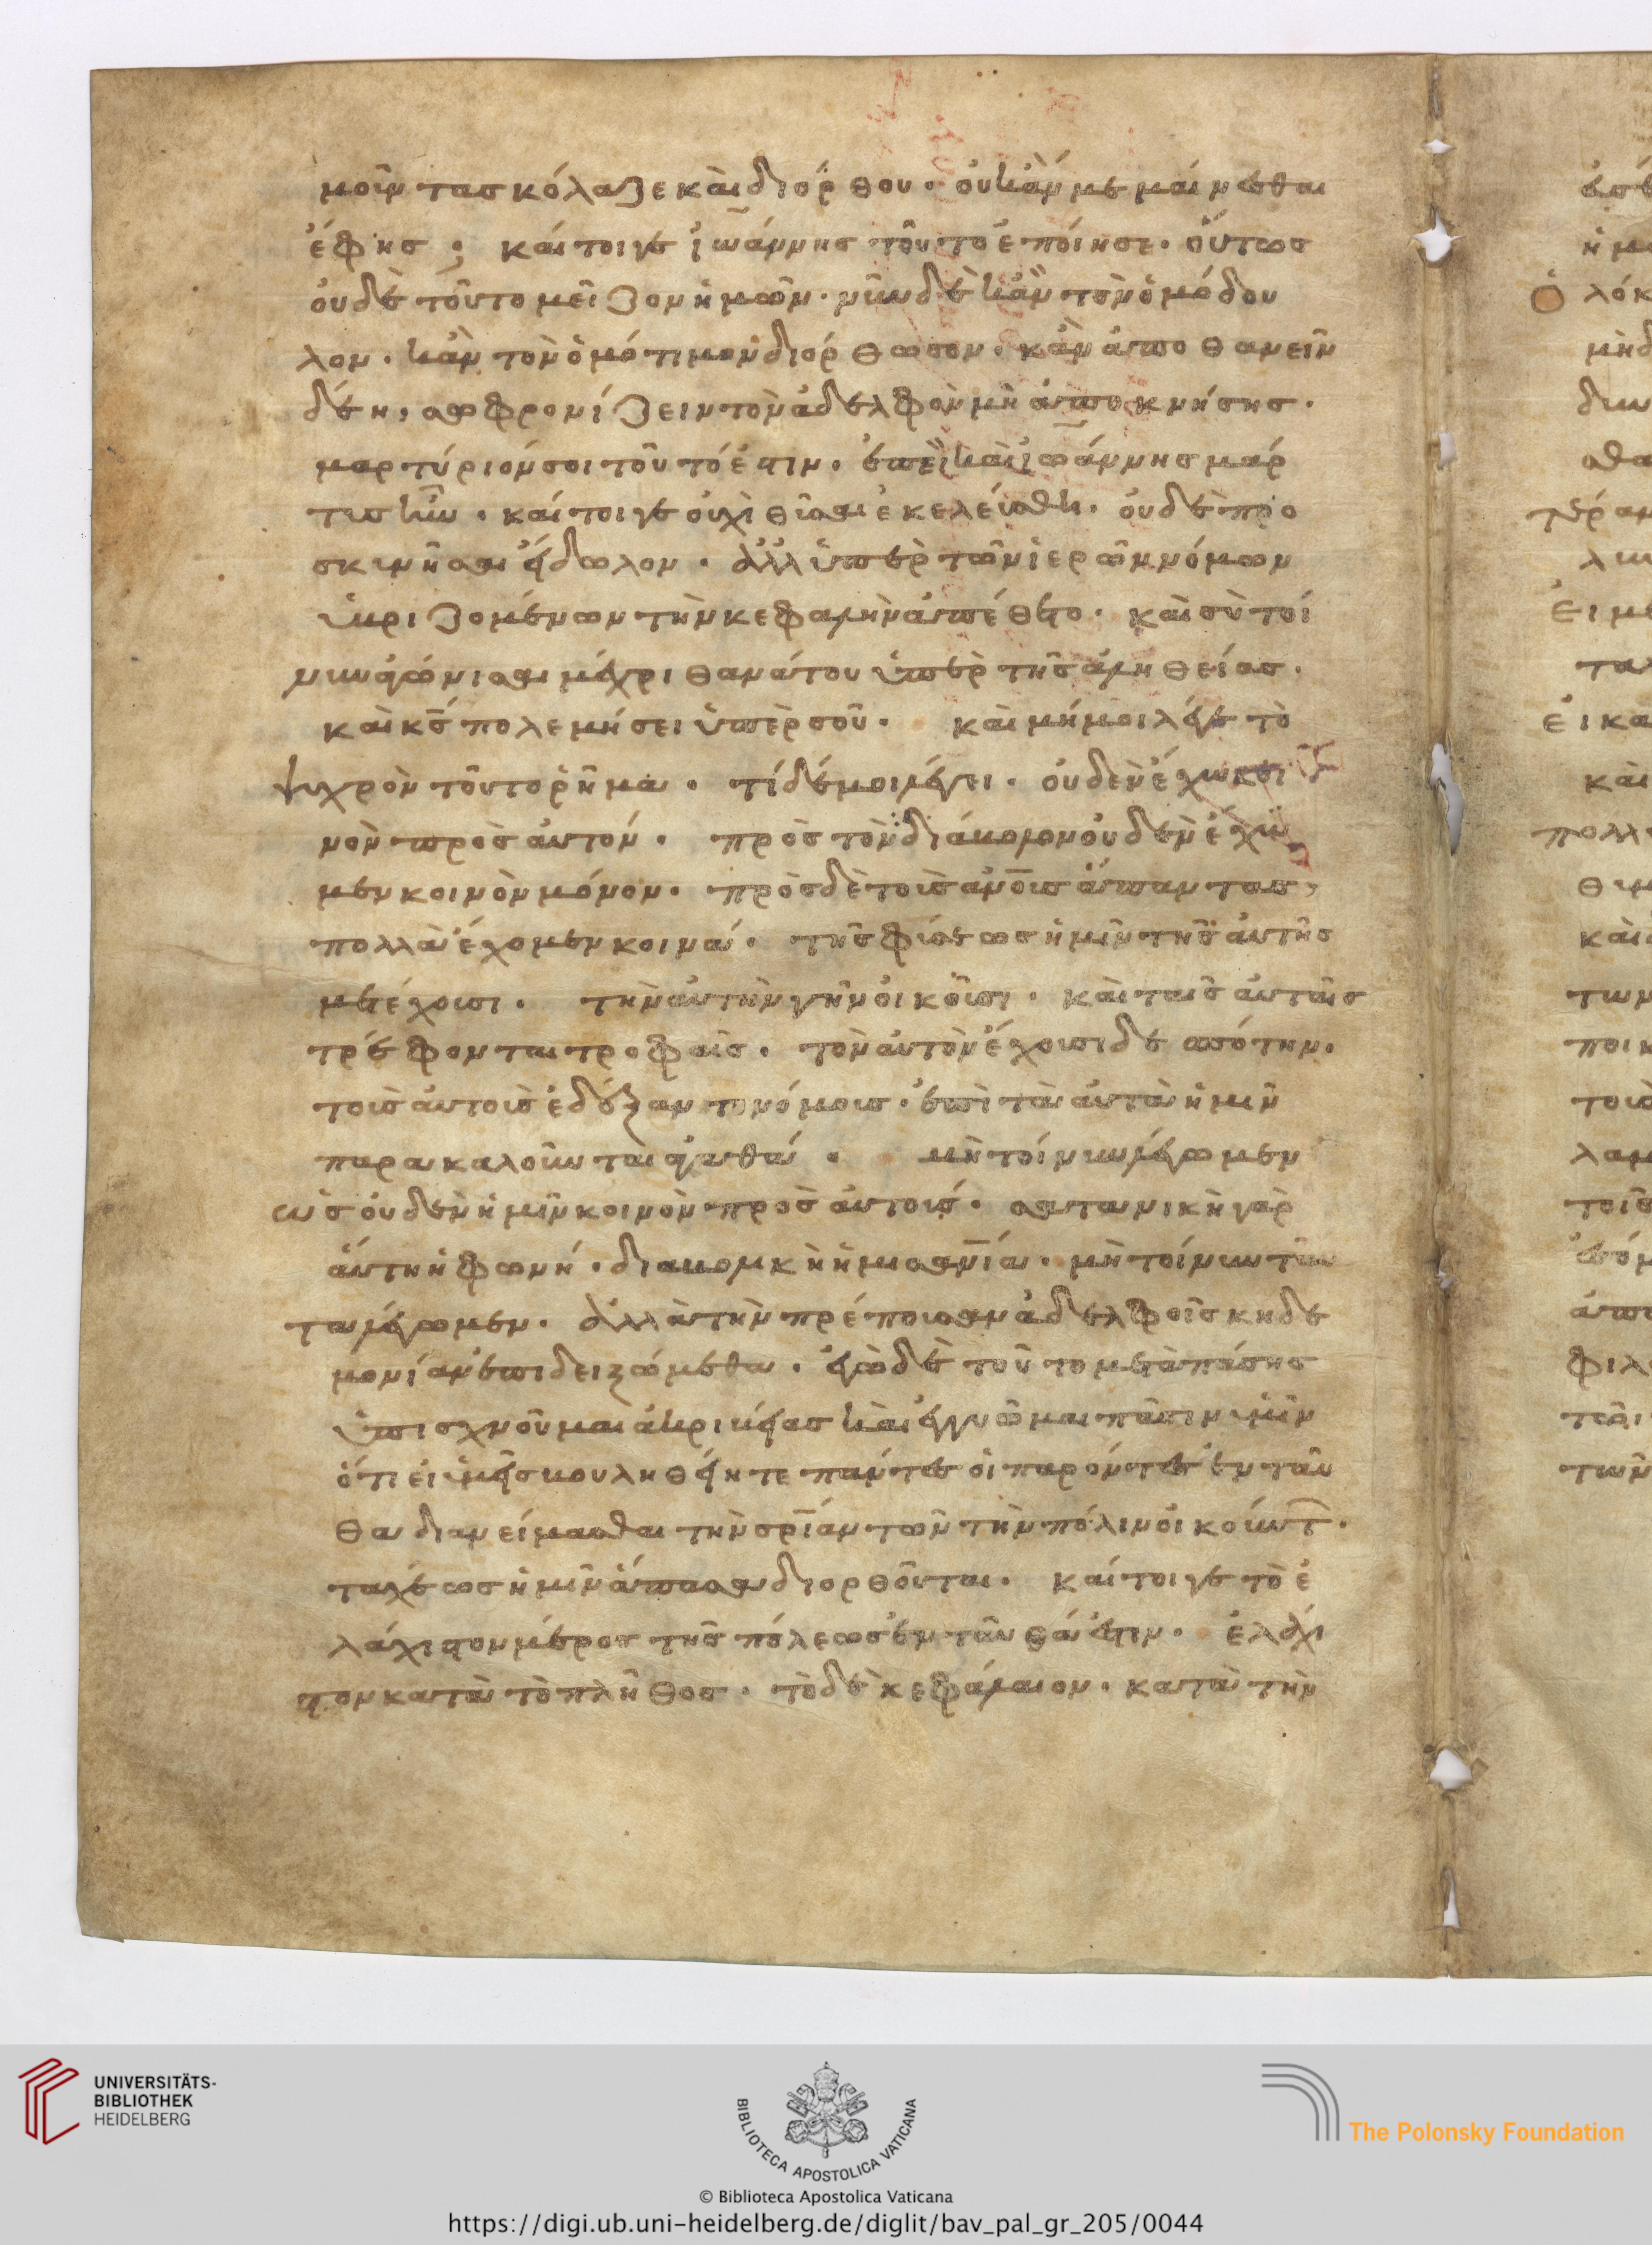 μοῦντας κόλαζε καὶ διόρθου· οὐκ ἄν με μαίνεσθαι
ἔφης; καίτοιγε ἰωάννης τοῦτο ἐποίησε· οὕτως
οὐδὲ τοῦτο μεῖζον ἡμῶν· νῦν δὲ κἂν τὸν ὁμόδου
λον· κἂν τὸν ὁμότιμον διόρθωσον· κἂν ἀποθανεῖν
δέη, σωφρονίζειν τὸν ἀδελφὸν μὴ ἀποκνήσης·
μαρτύριόν σοι τοῦτό ἐστιν· ἐπεὶ καὶ ἰωάννης μάρ
τυς ἦν· καίτοιγε οὐχὶ θῦσαι ἐκελεύσθη· οὐδὲ προ
σκυνῆσαι εἴδωλον· ἀλλ ὑπὲρ τῶν ἱερῶν νόμων
ὑβριζομένων τὴν κεφαλὴν ἀπέθετο· καὶ σὺ τοί
νυν ἀγώνισαι μέχρι θανάτου ὑπὲρ τῆς ἀληθείας·
καὶ κς πολεμήσει ὑπὲρ σοῦ· καὶ μή μοι λέγε τὸ
ψυχρὸν τοῦτο ῥῆμα· τί δέ μοι μέλει· οὐδεν ἔχω κοι
νὸν πρὸς αὐτόν· πρὸς τὸν διάβολον οὐδὲν ἔχω
μεν κοινὸν μόνον· πρὸς δὲ τοὺς ανους ἅπαντας,
πολλὰ ἔχομεν κοινά· τῆς φύσεως ἡμῖν τῆς αὐτῆς
μετέχουσι· τὴν αὐτὴν γῆν οἰκοῦσι· καὶ ταῖς αὐταῖς
τρέφονται τροφαῖς· τὸν αὐτὸν ἔχουσι δεσπότην·
τοὺς αὐτοὺς ἐδέξαντο νόμους· ἐπὶ τὰ αὐτὰ ἡμῖν
παρακαλοῦνται ἀγαθά· μὴ τοίνυν λέγωμεν
ὡς οὐδὲν ἡμῖν κοινὸν πρὸς αὐτούς· σατανικὴ γὰρ
αὕτη ἡ φωνή· διαβολικὴ ἡ μισανία· μὴ τοίνυν ταῦ
τα λέγωμεν· ἀλλὰ τὴν πρέπουσαν ἀδελφοῖς κηδε
μονίαν ἐπιδειξώμεθα· ἐγὼ δὲ τοῦτο μετὰ πάσης
ὑπισχνοῦμαι ἀκριβείας καὶ ἐγγυῶμαι πᾶσιν ὑμῖν
ὅτι εἰ ὑμεῖς βουληθείητε πάντες οἱ παρόντες ἐνταῦ
θα διανείμασθαι τὴν σρίαν τῶν τὴν πόλιν οἰκούντ·
ταχέως ἡμῖν ἅπασα διορθοῦται· καίτοιγε τὸ ἐ
λάχιστον μέρος τῆς πόλεως ἐνταῦθά ἐστιν· ἐλάχι
στον κατὰ τὸ πλῆθος· τὸ δὲ κεφάλαιον· κατὰ τὴν
UNIVERSITÄTS-
BIBLIOTHEK
HEIDELBERG
BIBLIOTECA APOSTOLICA VATICANA
The Polonsky Foundation
© Biblioteca Apostolica Vaticana
https://digi.ub.uni-heidelberg.de/diglit/bav_pal_gr_205/0044